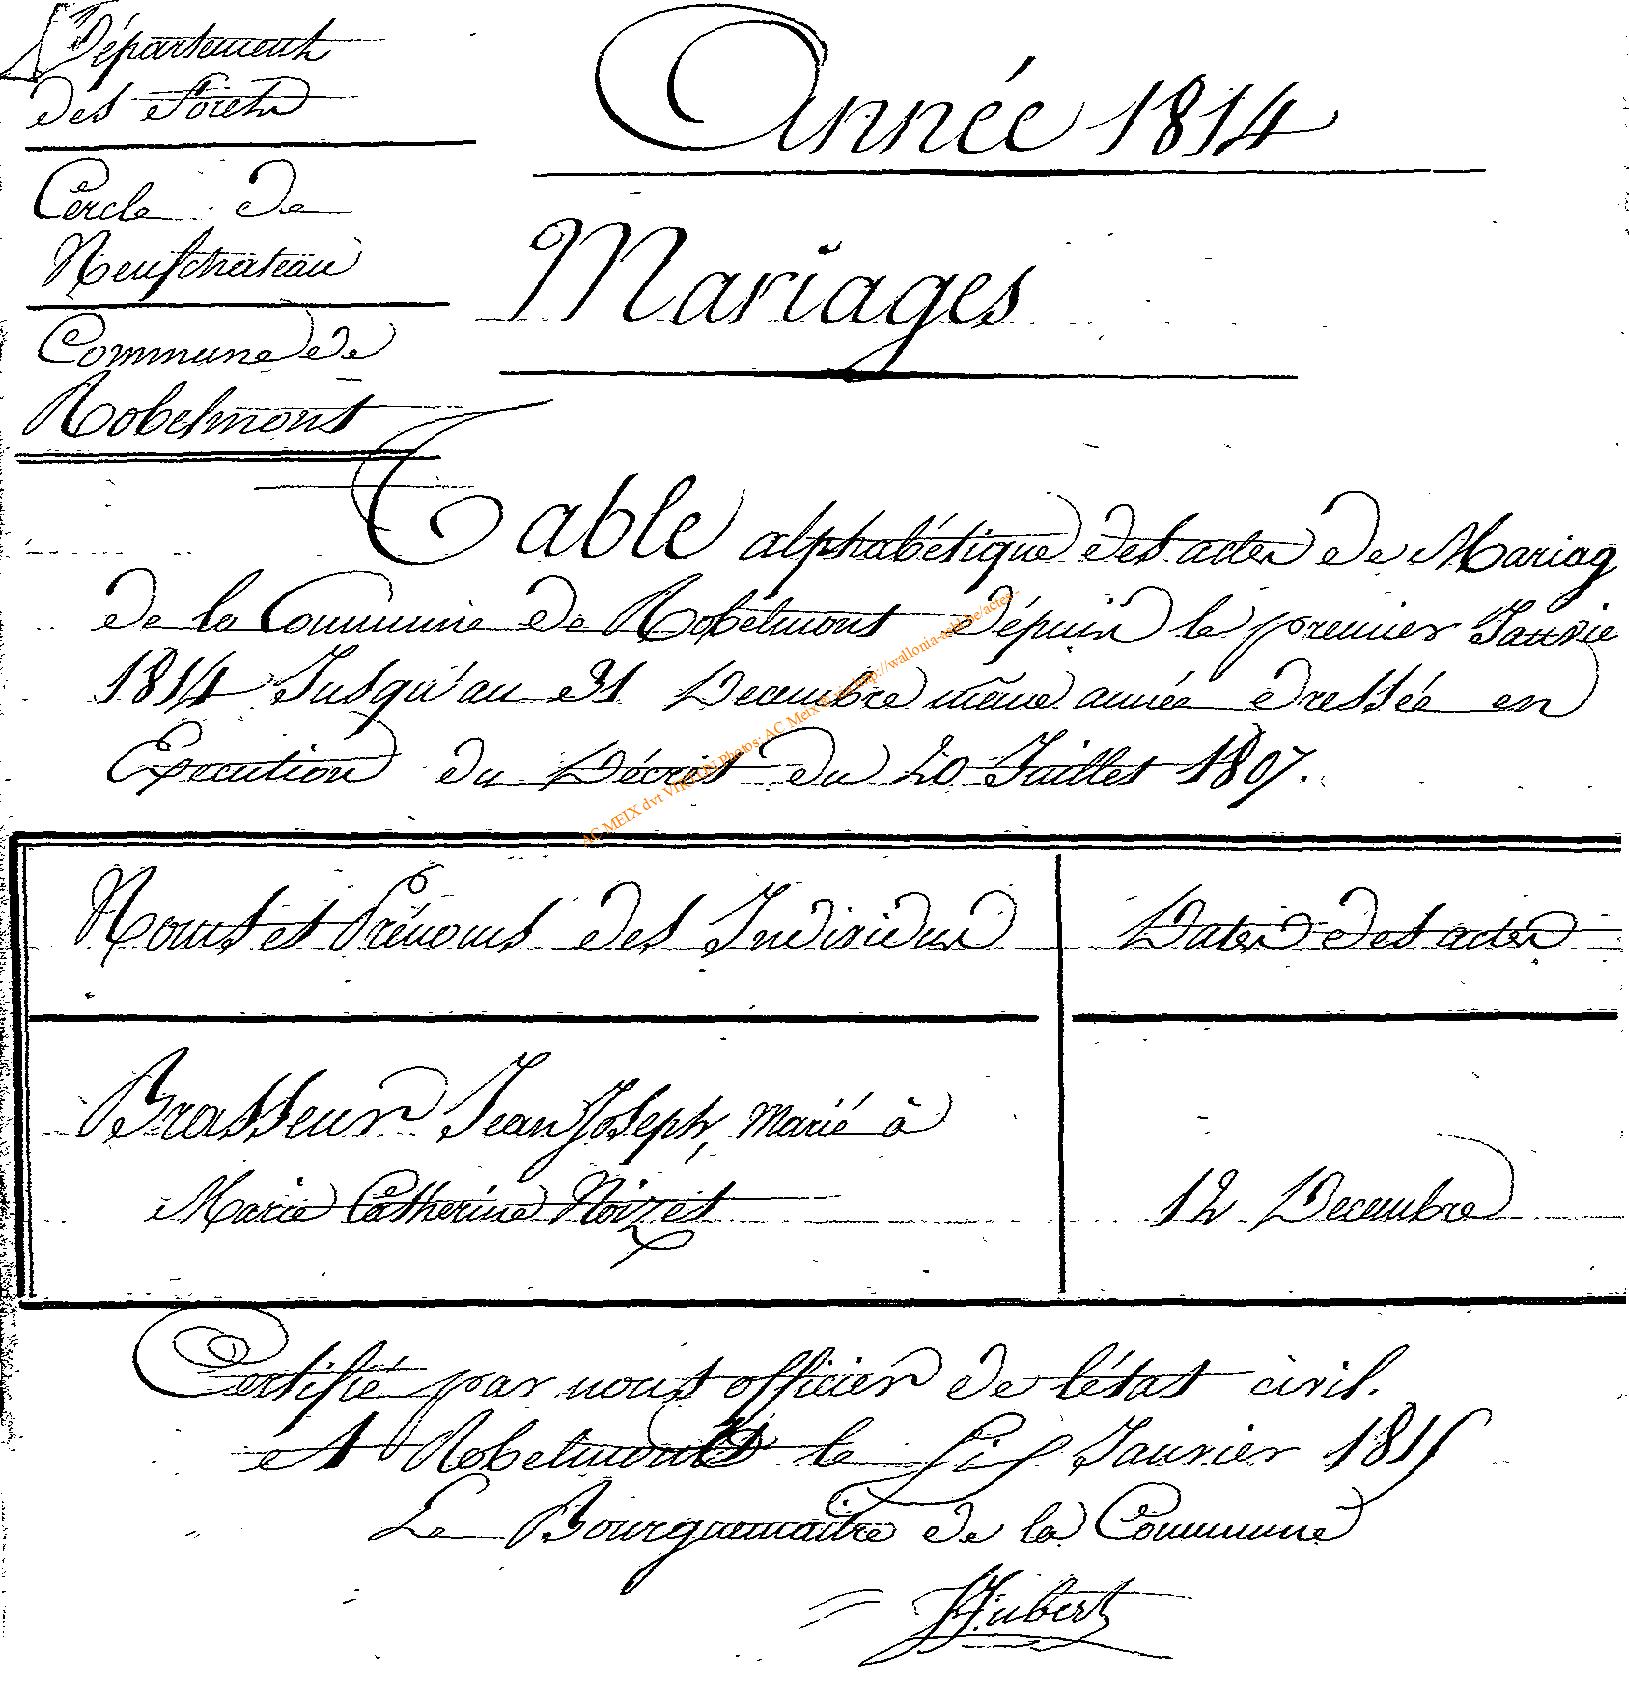 Département
des Forets
Cercle de
Neufchateau
Commune de
Robelmont
Année 1814
Mariages
Table alphabétique des actes de Mariag
de la Commune de Robelmont dépuis le premier Janvie
1814 Jusqu'au 31 Decembre même année dressée en
Execution du Décret du 20 Juillet 1807.
Noms et Prénoms des Individus
Dates des actes
Brasseur Jean Joseph, marié à
Marie Catherine Noizet
12 Decembre
Certifié par nous officier de l'état civil.
et Robelmont le six Janvier 1815
Le Bourguemaitre de la Commune
Hubert
AC MEIX dvt VIRTON Photos: AC Meix http://wallonia-asbl.be/actes